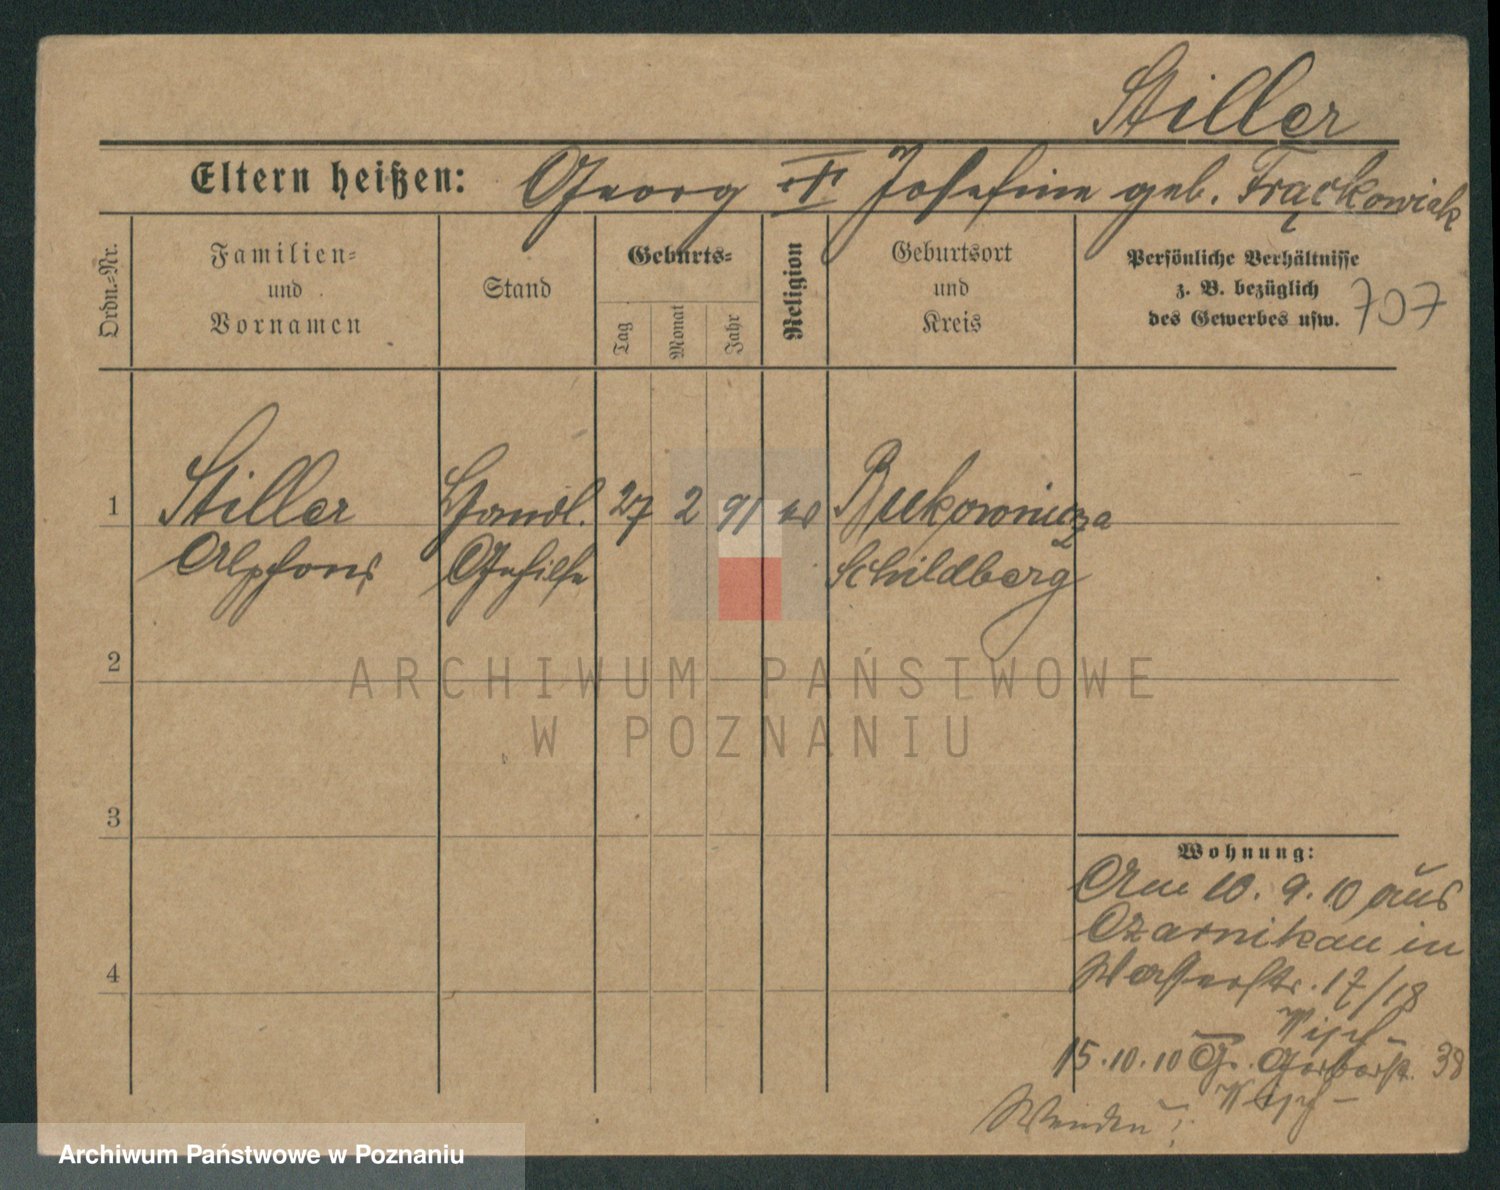 Stiller
Eltern heißen: Georg u. Josefine geb. Frąckowiak
Ordn.-Nr.
Familien-
und
Vornamen
Stand
Geburts-
Tag
Monat
Jahr
Religion
Geburtsort
und
Kreis
Persönliche Verhältnisse
z. B. bezüglich
des Gewerbes usw.
707
1 Stiller Handl. 27 2 91 Bukownicza
Alphons Gehilfe Schildberg
2
3
4
Wohnung:
Am 10. 9. 10 aus
Czarnikau in
Wasserstr. 17/18
15.10.10 Gr. Gerberstr. 38
Wenden!
ARCHIWUM PAŃSTWOWE
W POZNANIU
Archiwum Państwowe w Poznaniu